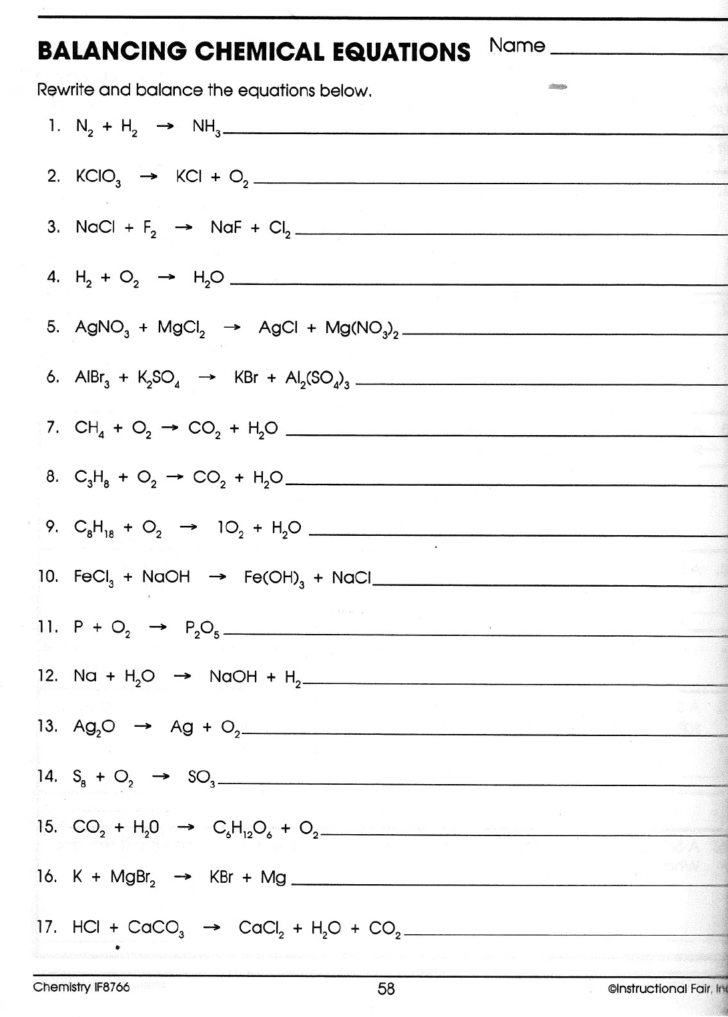 BALANCING CHEMICAL EQUATIONS Name
Rewrite and balance the equations below.
1. N₂ + H₂ → NH₃
2. KClO₃ → KCl + O₂
3. NaCl + F₂ → NaF + Cl₂
4. H₂ + O₂ → H₂O
5. AgNO₃ + MgCl₂ → AgCl + Mg(NO₃)₂
6. AlBr₃ + K₂SO₄ → KBr + Al₂(SO₄)₃
7. CH₄ + O₂ → CO₂ + H₂O
8. C₃H₈ + O₂ → CO₂ + H₂O
9. C₈H₁₈ + O₂ → 1O₂ + H₂O
10. FeCl₃ + NaOH → Fe(OH)₃ + NaCl
11. P + O₂ → P₂O₅
12. Na + H₂O → NaOH + H₂
13. Ag₂O → Ag + O₂
14. S₈ + O₂ → SO₃
15. CO₂ + H₂0 → C₆H₁₂O₆ + O₂
16. K + MgBr₂ → KBr + Mg
17. HCl + CaCO₃ → CaCl₂ + H₂O + CO₂
Chemistry IF8766 58 ©Instructional Fair, In